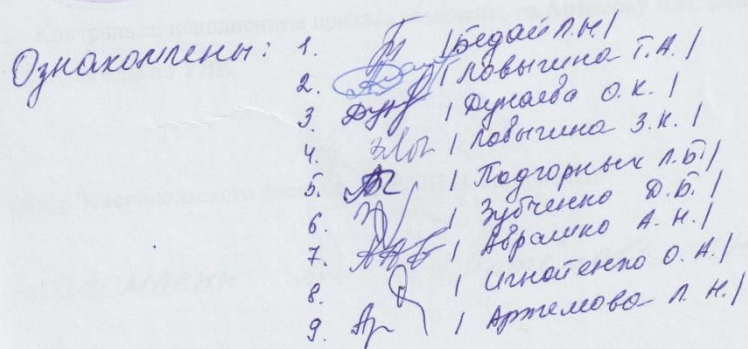 Ознакомлены: 1. /Бедай Л.Н./
2. /Ловыгина Т.А./
3. /Дунаева О.К./
4. /Ловыгина З.К./
5. /Подгорных Л.Б./
6. /Зубченко Д.Б./
7. /Аврамко А.Н./
8. /Игнатенко О.А./
9. /Артемова Л.Н./